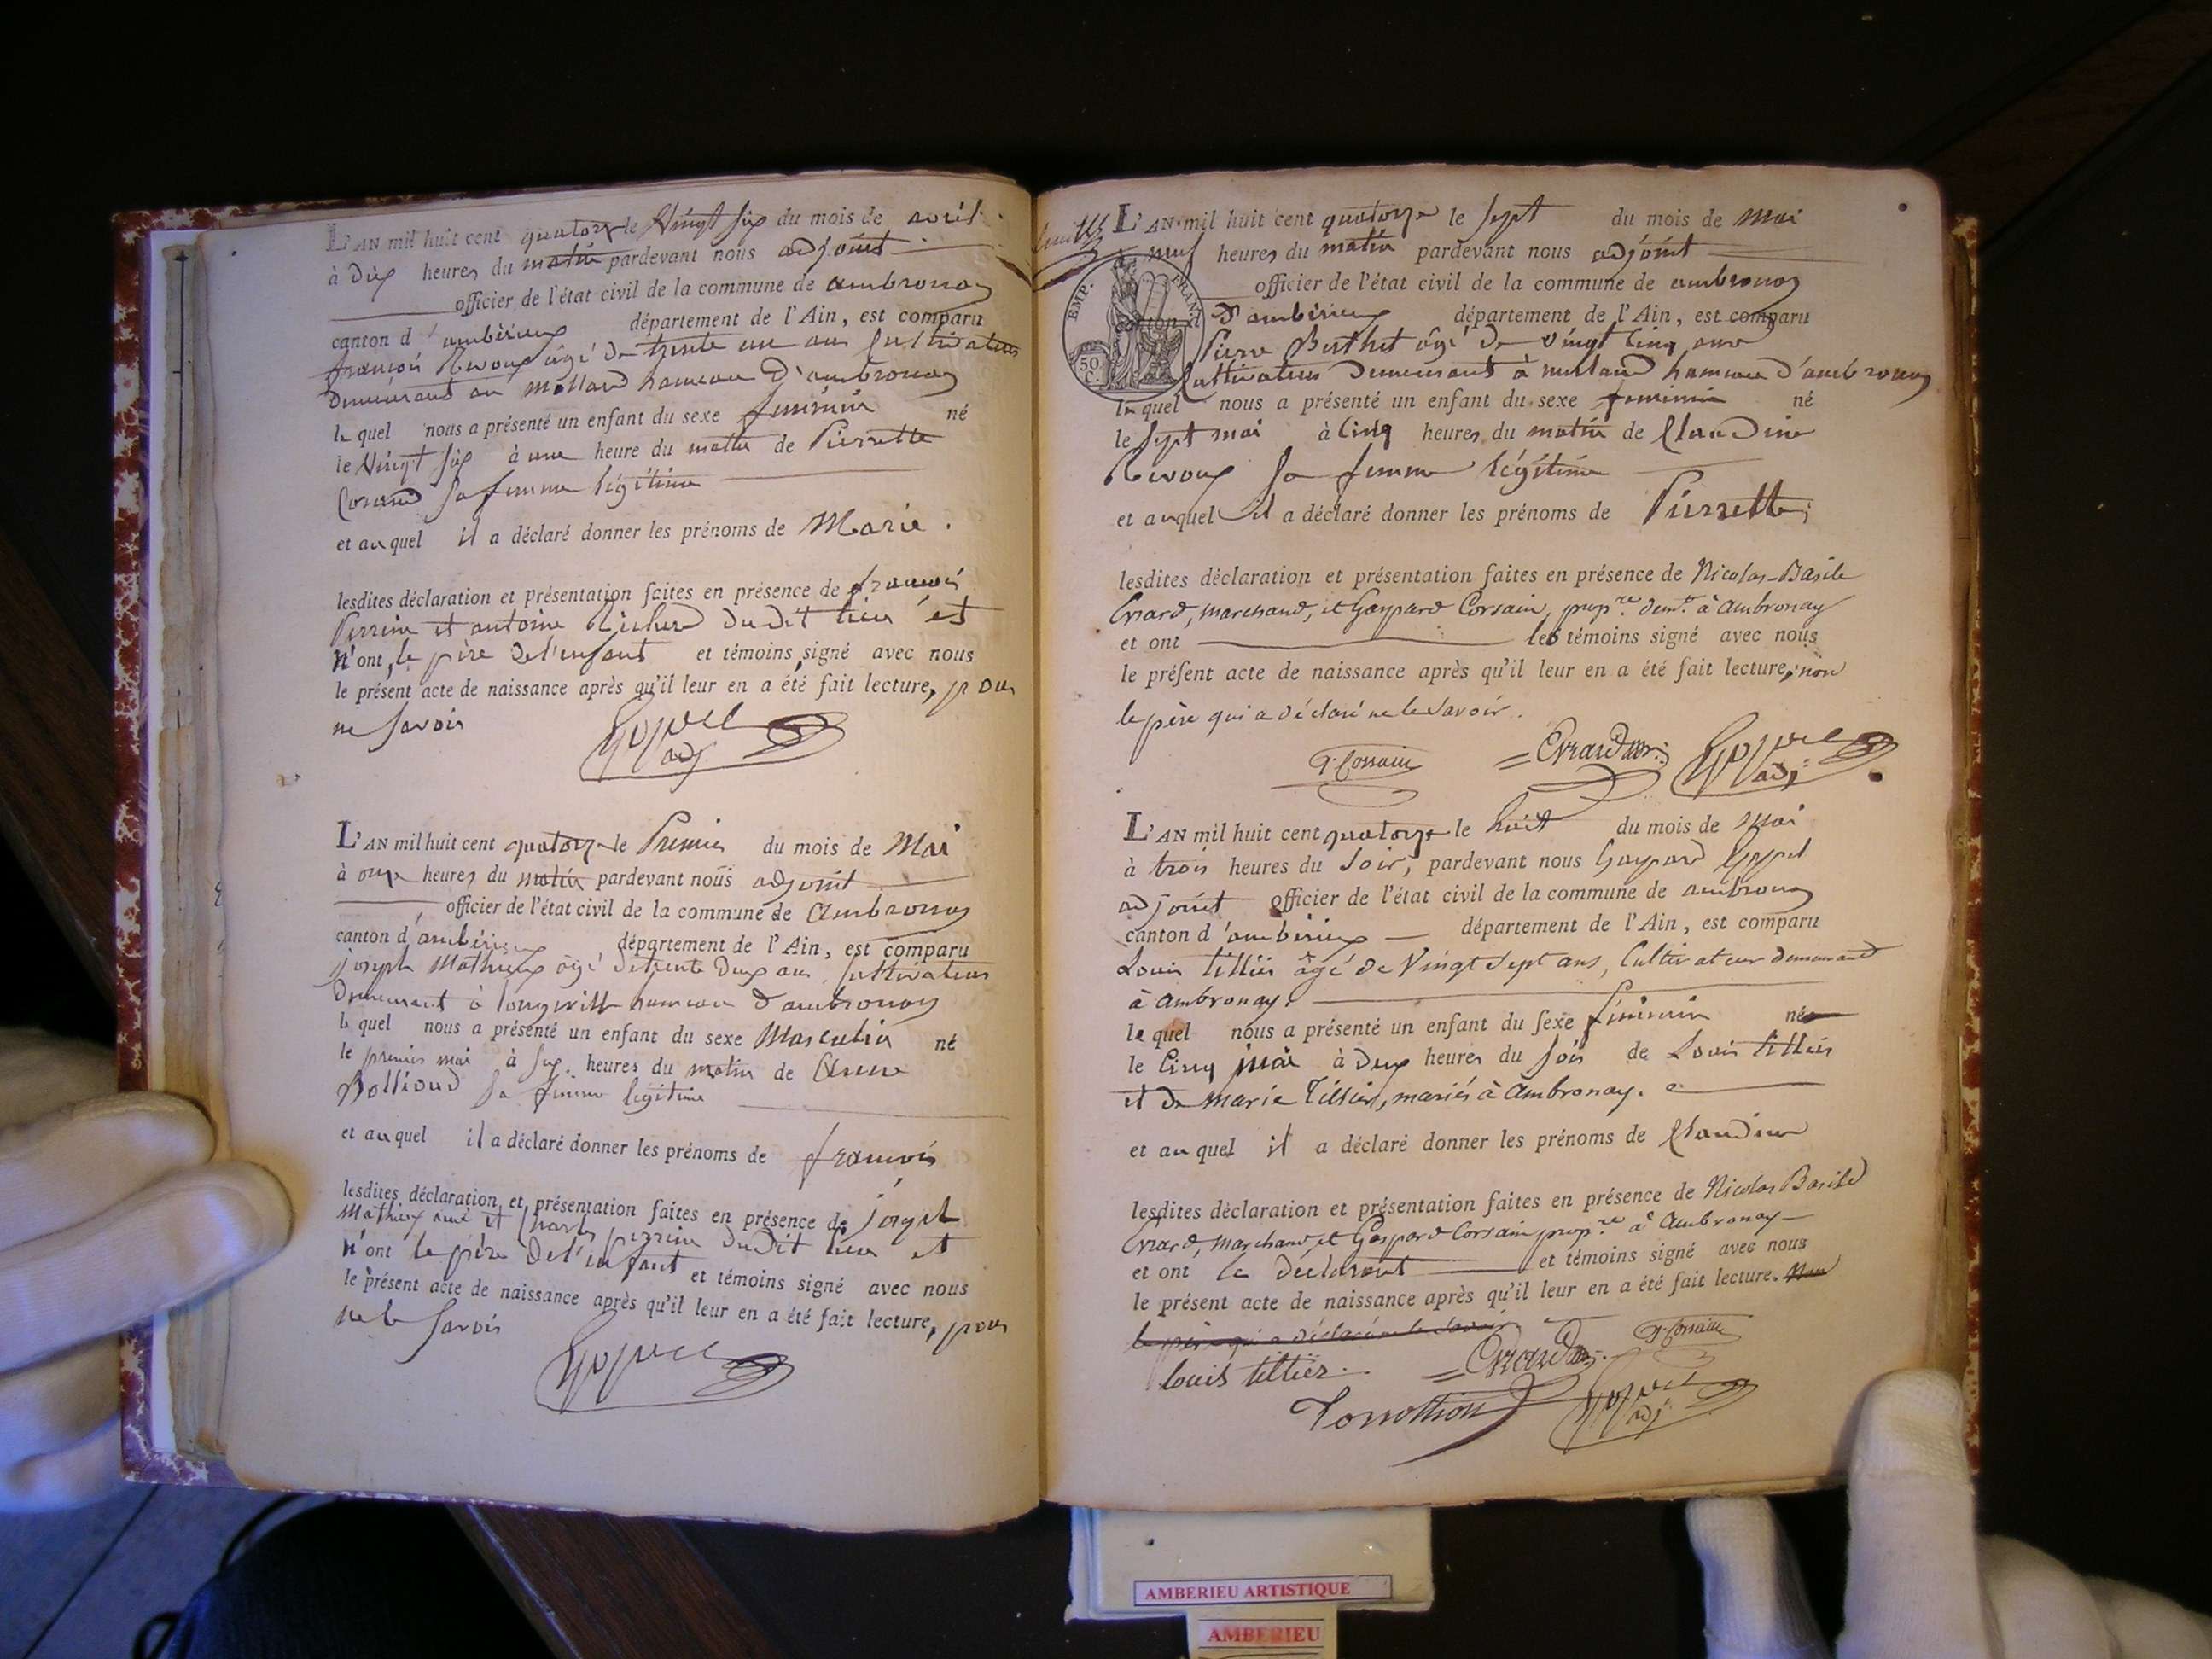 L'AN mil huit cent quatorze le Vingt six du mois de avril
à dix heures du matin pardevant nous adjoint
officier de l'état civil de la commune de ambronay
canton d'ambérieux département de l'Ain, est comparu
françois Revoux âgé de trente un ans Cultivateur
demeurant au mollard hameau d'ambronay
lequel nous a présenté un enfant du sexe feminin né
le Vingt six à une heure du matin de Pierrette
sa femme légitime
et auquel il a déclaré donner les prénoms de Marie.
lesdites déclaration et présentation faites en présence de françois
Perrin et antoine dudit lieu et
n'ont, le père de l'enfant et témoins, signé avec nous
le présent acte de naissance après qu'il leur en a été fait lecture, pour
ne savoir
adj
L'AN mil huit cent quatorze le Premier du mois de Mai
à onze heures du matin pardevant nous adjoint
officier de l'état civil de la commune de Ambronay
canton d'ambérieux département de l'Ain, est comparu
joseph Mathieux âgé de trente deux ans Cultivateur
demeurant à longeville hameau d'ambronay
lequel nous a présenté un enfant du sexe Masculin né
le premier mai à six heures du matin de Anne
Bollioud sa femme légitime
et auquel il a déclaré donner les prénoms de françois
lesdites déclaration et présentation faites en présence de joseph
Mathieux et Charles perrin dudit lieu et
n'ont le père de l'enfant et témoins signé avec nous
le présent acte de naissance après qu'il leur en a été fait lecture, pour
ne le savoir
L'AN mil huit cent quatorze le sept du mois de Mai
à neuf heures du matin pardevant nous adjoint
officier de l'état civil de la commune de ambronay
EMP. FRAN.
50 C.
canton d d'ambérieux département de l'Ain, est comparu
Pierre Berthet âgé de vingt cinq ans
Cultivateur demeurant à hameau d'ambronay
lequel nous a présenté un enfant du sexe feminin né
le sept mai à cinq heures du matin de Claudine
Revoux sa femme légitime
et auquel il a déclaré donner les prénoms de Pierrette;
lesdites déclaration et présentation faites en présence de Nicolas-Basile
Evrard, marchand, et Gaspard Corsain, prop.re dem.t à ambronay
et ont les témoins signé avec nous
le présent acte de naissance après qu'il leur en a été fait lecture, non
le père qui a déclaré ne le savoir.
G. Corsain Evrard adj:
L'AN mil huit cent quatorze le huit du mois de Mai
à trois heures du soir, pardevant nous Gaspard
adjoint officier de l'état civil de la commune de ambronay
canton d'ambérieux département de l'Ain, est comparu
Louis tillier âgé de Vingt sept ans, Cultivateur demeurant
à ambronay.
lequel nous a présenté un enfant du sexe féminin né
le Cinq mai à deux heures du soir de Louis tillier
et de marie Tillier, mariés à Ambronay.
et auquel il a déclaré donner les prénoms de Claudine
lesdites déclaration et présentation faites en présence de Nicolas Basile
Evrard, marchand, et Gaspard Corsain prop.re à Ambronay
et ont le déclarant et témoins signé avec nous
le présent acte de naissance après qu'il leur en a été fait lecture. Non
le père qui a déclaré ne le savoir
louis tillier. Evrard G. Corsain
adj:
AMBERIEU ARTISTIQUE
AMBERIEU